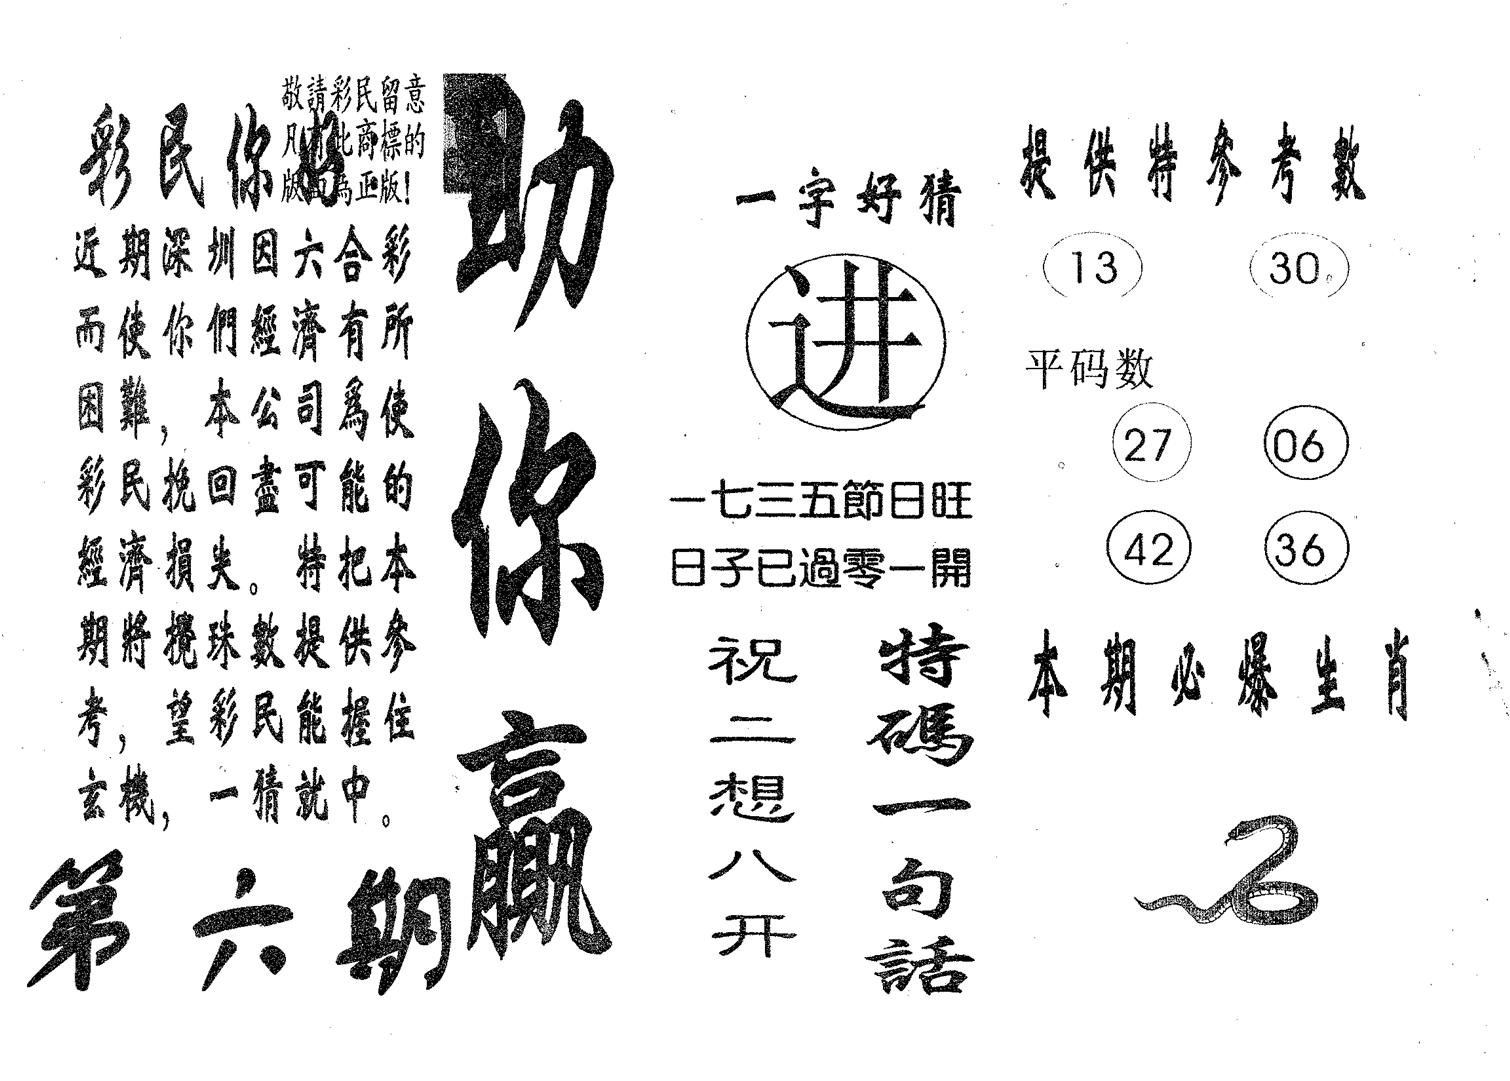 敬請彩民留意
凡有此商標的
版面為正版!
彩民你好
近期深圳因六合彩
而使你們經濟有所
困難，本公司爲使
彩民挽回盡可能的
經濟損失。特把本
期將攪珠數提供參
考，望彩民能握住
玄機，一猜就中。
第六期
助你贏
一字好猜
进
一七三五節日旺
日子已過零一開
特碼一句話
祝二想八开
提供特參考數
13 30
平码数
27 06
42 36
本期必爆生肖